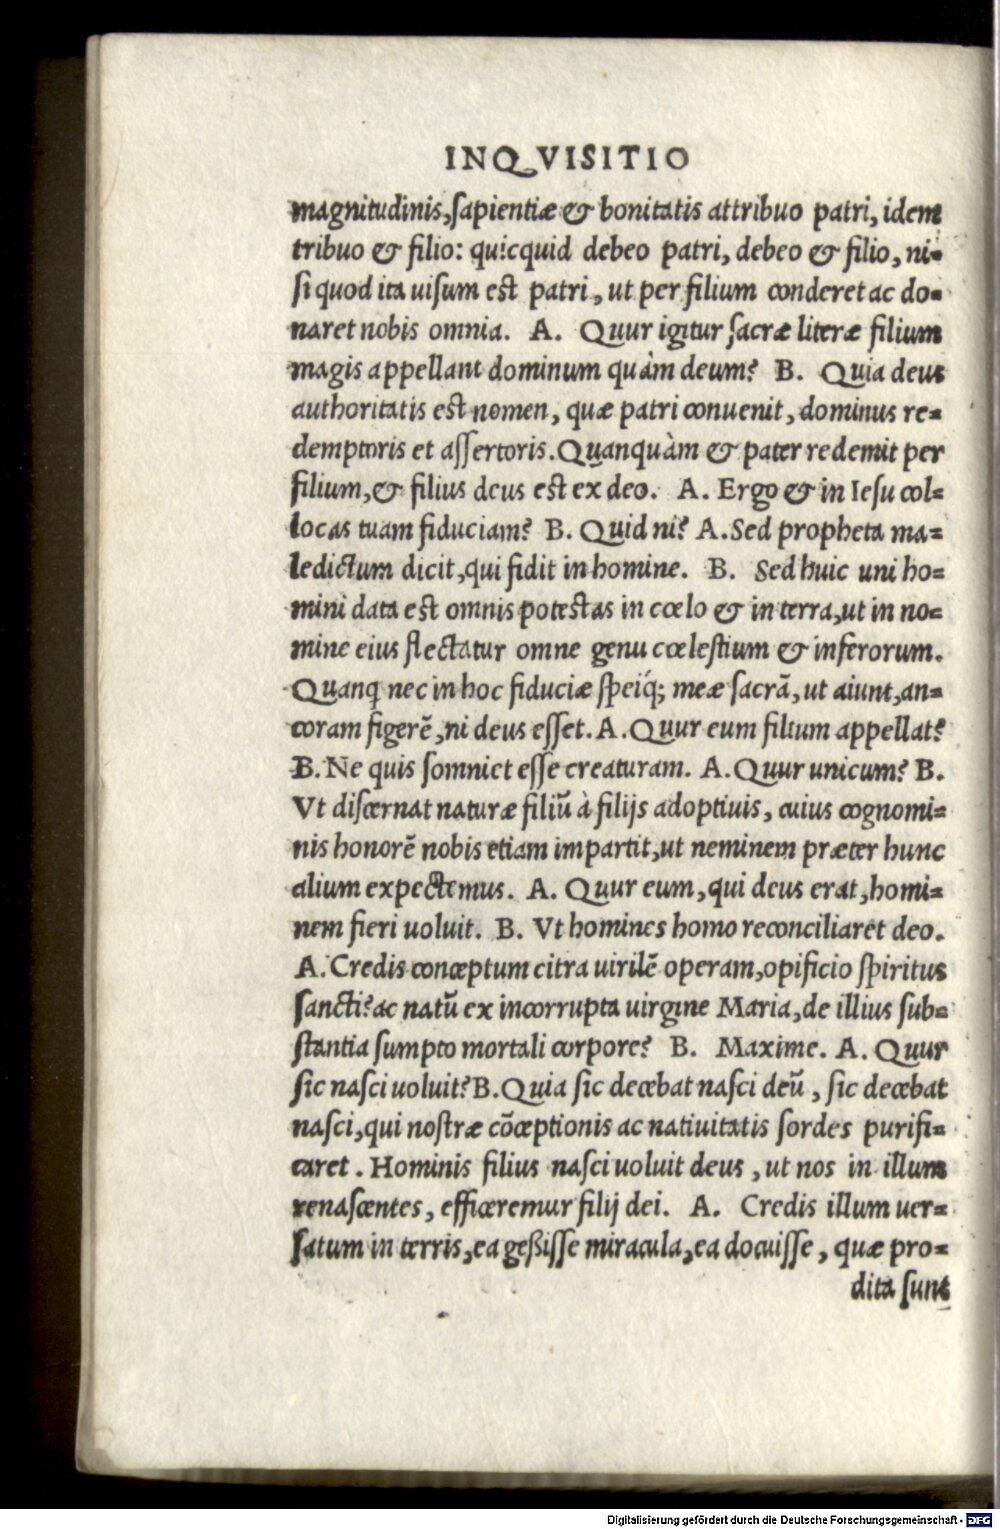 INQVISITIO
magnitudinis,sapientiæ & bonitatis attribuo patri, idem
tribuo & filio: quicquid debeo patri, debeo & filio, ni-
si quod ita uisum est patri, ut per filium conderet ac do-
naret nobis omnia. A. Quur igitur sacræ literæ filium
magis appellant dominum quàm deum? B. Quia deus
authoritatis est nomen, quæ patri conuenit, dominus re-
demptoris et assertoris. Quanquàm & pater redemit per
filium,& filius deus est ex deo. A. Ergo & in Iesu col-
locas tuam fiduciam? B. Quid ni? A. Sed propheta ma-
ledictum dicit,qui fidit in homine. B. Sed huic uni ho-
mini data est omnis potestas in cœlo & in terra,ut in no-
mine eius flectatur omne genu cœlestium & inferorum.
Quanq nec in hoc fiduciæ speiq́; meæ sacrã, ut aiunt,an-
coram figerẽ,ni deus esset. A. Quur eum filium appellat?
B. Ne quis somniet esse creaturam. A. Quur unicum? B.
Vt discernat naturæ filiũ à filijs adoptiuis, cuius cognomi-
nis honorẽ nobis etiam impartit,ut neminem præter hunc
alium expectemus. A. Quur eum,qui deus erat,homi-
nem fieri uoluit. B. Vt homines homo reconciliaret deo.
A. Credis conceptum citra uirilẽ operam,opificio spiritus
sancti?ac natũ ex incorrupta uirgine Maria,de illius sub-
stantia sumpto mortali corpore? B. Maxime. A. Quur
sic nasci uoluit? B. Quia sic decebat nasci deũ, sic decebat
nasci,qui nostræ cõceptionis ac natiuitatis sordes purifi-
caret. Hominis filius nasci uoluit deus, ut nos in illum
renascentes, efficeremur filij dei. A. Credis illum uer-
satum in terris,ea geßisse miracula,ea docuisse, quæ pro-
dita sunt
Digitalisierung gefördert durch die Deutsche Forschungsgemeinschaft - DFG